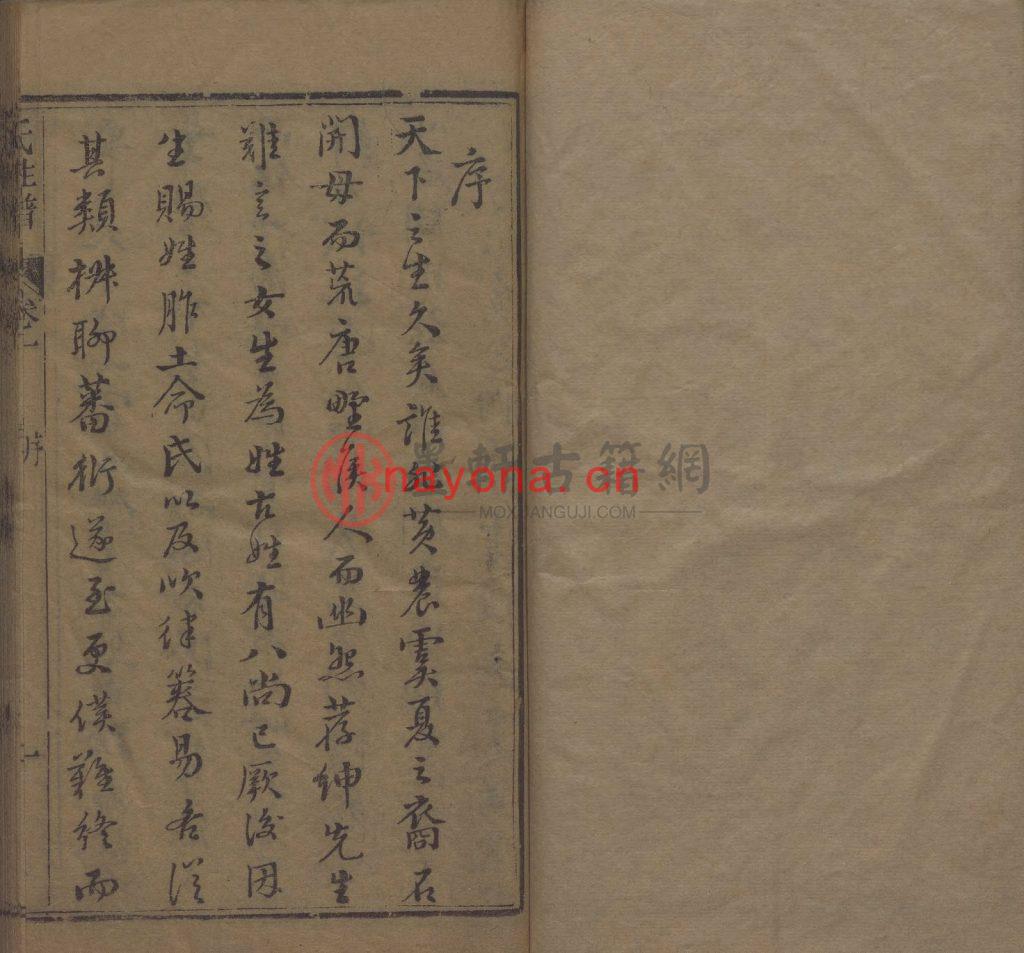 序
天下之生久矣誰黃農虞夏之裔石
開母而荒唐野侯人而幽怨薦紳先生
難言之女生為姓古姓有八尚已厥後因
生賜姓胙土命氏以及吹律筮易各從
其類椒聊蕃衍遂至更僕難終而
氏姓譜 卷一 序 一
軒古籍網
nayona.cn
MOXUANGUJI.COM